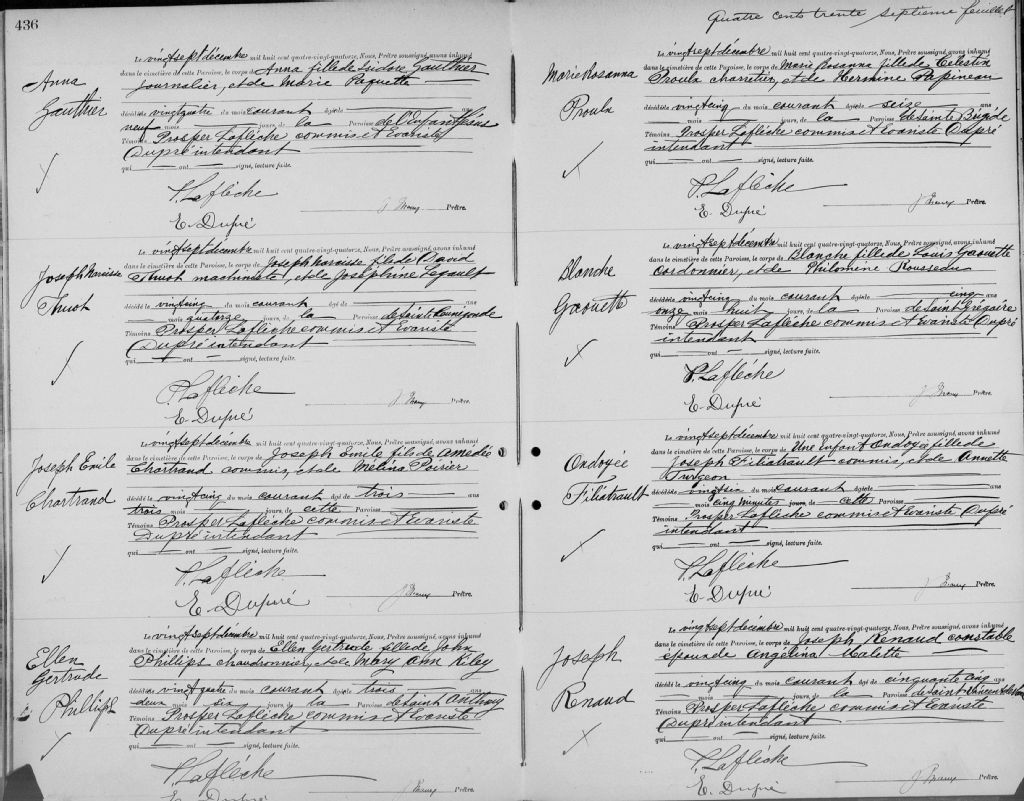 436
Anna
Gauthier
Le vingt sept décembre mil huit cent quatre-vingt-quatorze, Nous, Prêtre soussigné, avons inhumé
dans le cimetière de cette Paroisse, le corps de Anna fille de Isidore Gauthier
journalier, et de Marie Paquette
décédée vingtquatre du mois courant âgé de ans
neuf mois jours, de la Paroisse de l'Enfant Jésus
Témoins Prosper Laflèche commis et Evariste
Dupré intendant
qui ont signé, lecture faite.
P. Laflèche
E. Dupré
Prêtre.
Joseph Narcisse
Thuot
Le vingt sept décembre mil huit cent quatre-vingt-quatorze, Nous, Prêtre soussigné, avons inhumé
dans le cimetière de cette Paroisse, le corps de Joseph Narcisse fils de David
Thuot machiniste, et de Joséphine Legault
décédé le vingtcinq du mois courant âgé de ans
mois quatorze jours, de la Paroisse de Sainte Cunégonde
Témoins Prosper Laflèche commis et Evariste
Dupré intendant
qui ont signé, lecture faite.
P. Laflèche
E. Dupré
Prêtre.
Joseph Emile
Chartrand
Le vingt sept décembre mil huit cent quatre-vingt-quatorze, Nous, Prêtre soussigné, avons inhumé
dans le cimetière de cette Paroisse, le corps de Joseph Emile fils de Amedée
Chartrand commis, et de Melina Poirier
décédé le vingtcinq du mois courant âgé de trois ans
trois mois jours, de cette Paroisse
Témoins Prosper Laflèche commis et Evariste
Dupré intendant
qui ont signé, lecture faite.
P. Laflèche
E. Dupré
Prêtre.
Ellen
Gertrude
Phillips
Le vingt sept décembre mil huit cent quatre-vingt-quatorze, Nous, Prêtre soussigné, avons inhumé
dans le cimetière de cette Paroisse, le corps de Ellen Gertrude fille de John
Phillips chaudronnier, et de Mary Ann Riley
décédée vingt quatre du mois courant âgé de trois ans
deux mois six jours, de la Paroisse de Saint Anthony
Témoins Prosper Laflèche commis et Evariste
Dupré intendant
qui ont signé, lecture faite.
P. Laflèche
E. Dupré
Prêtre.
Quatre cent trente septieme feuillet
Marie Rosanna
Proulx
Le vingt sept décembre mil huit cent quatre-vingt-quatorze, Nous, Prêtre soussigné, avons inhumé
dans le cimetière de cette Paroisse, le corps de Marie Rosanna fille de Celestin
Proulx charretier, et de Hermine Papineau
décédée vingtcinq du mois courant âgé de seize ans
mois jours, de la Paroisse de Sainte Brigide
Témoins Prosper Laflèche commis et Evariste Dupré
intendant
qui ont signé, lecture faite.
P. Laflèche
E. Dupré
Prêtre.
Blanche
Gaouette
Le vingt sept décembre mil huit cent quatre-vingt-quatorze, Nous, Prêtre soussigné, avons inhumé
dans le cimetière de cette Paroisse, le corps de Blanche fille de Louis Gaouette
cordonnier, et de Philomine Rousseau
décédée vingtcinq du mois courant âgé de cinq ans
onze mois huit jours, de la Paroisse de Saint Grégoire
Témoins Prosper Laflèche commis et Evariste Dupré
intendant
qui ont signé, lecture faite.
P. Laflèche
E. Dupré
Prêtre.
Ondoyée
Filiatrault
Le vingt sept décembre mil huit cent quatre-vingt-quatorze, Nous, Prêtre soussigné, avons inhumé
dans le cimetière de cette Paroisse, le corps de Une Enfant Ondoyée fille de
Joseph Filiatrault commis, et de Annette
Turgeon
décédée vingtsix du mois courant âgé de ans
mois cinq minutes jours, de cette Paroisse
Témoins Prosper Laflèche commis et Evariste Dupré
intendant
qui ont signé, lecture faite.
P. Laflèche
E. Dupré
Prêtre.
Joseph
Renaud
Le vingt sept décembre mil huit cent quatre-vingt-quatorze, Nous, Prêtre soussigné, avons inhumé
dans le cimetière de cette Paroisse, le corps de Joseph Renaud constable
époux de Angélina Malette
décédé le vingtcinq du mois courant âgé de cinquante cinq ans
mois jours, de la Paroisse de Saint Vincent
Témoins Prosper Laflèche commis et Evariste
Dupré intendant
qui ont signé, lecture faite.
P. Laflèche
E. Dupré
Prêtre.